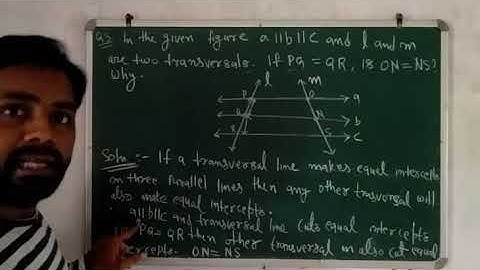 Q3 In the given figure a||b||c and l and m
are two transversals. If PQ = QR, is ON = NS?
Why.
l m
P O a
Q N b
R S c
Soln :- If a transversal line makes equal intercepts
on three parallel lines then any other trasversal will
also make equal intercepts.
a||b||c and transversal line cuts equal intercepts
PQ = QR then other transversal m also cut equal
intercepts. ON = NS